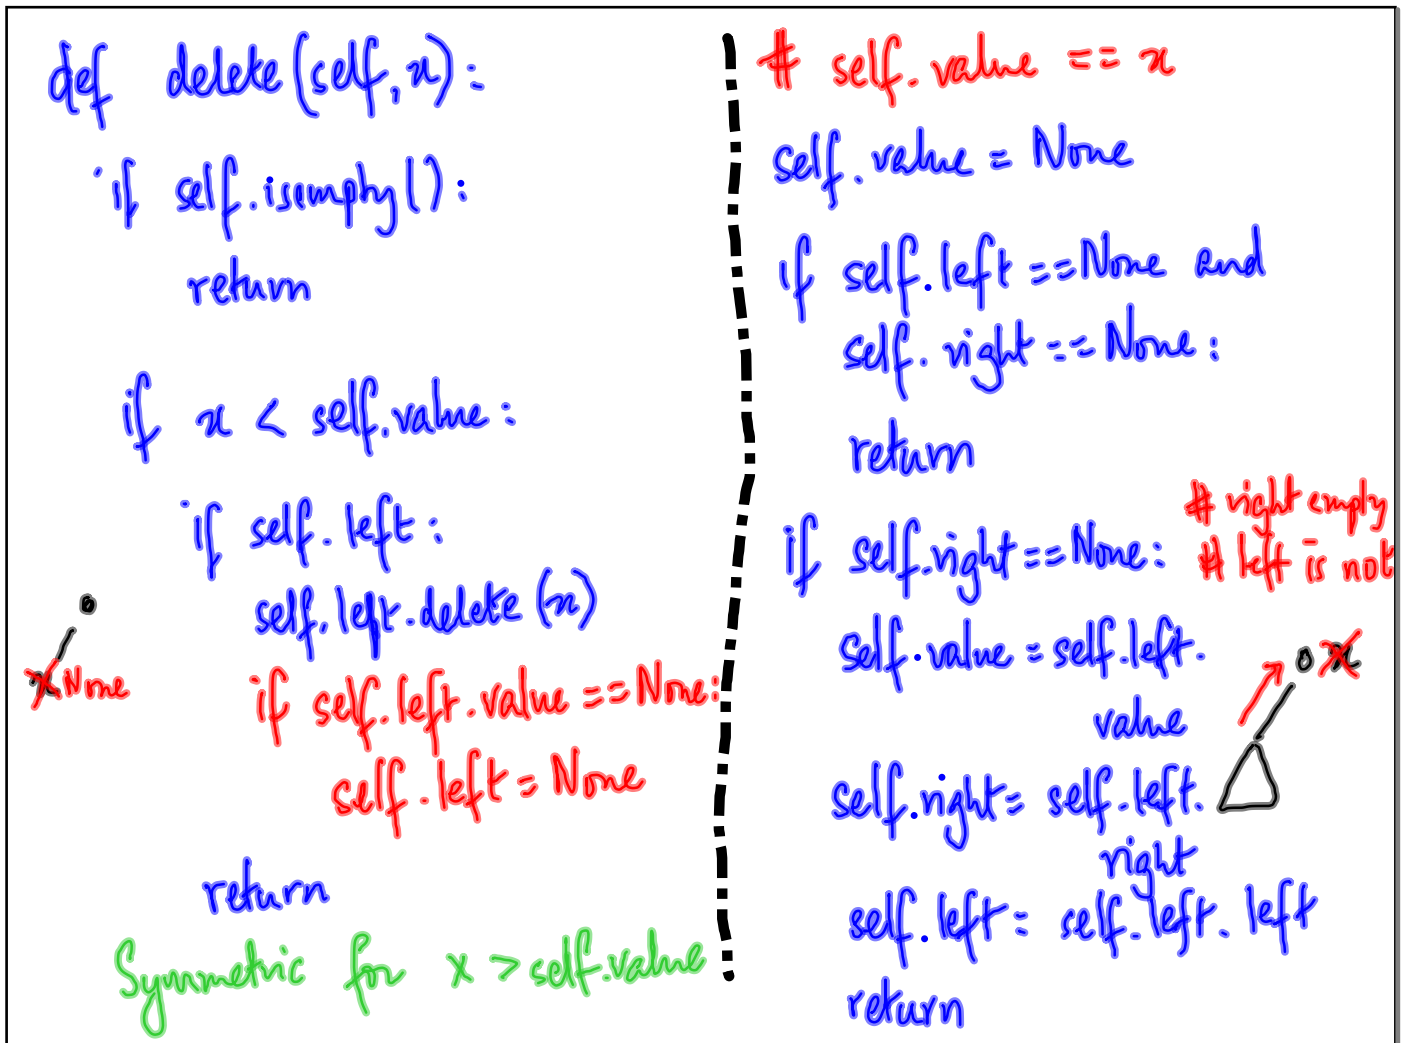 def delete(self, x):
if self.isempty():
return
if x < self.value:
if self.left:
self.left.delete(x)
None
if self.left.value == None:
self.left = None
return
Symmetric for x > self.value
# self.value == x
self.value = None
if self.left == None and
self.right == None:
return
# right empty
if self.right == None:
# left is not
self.value = self.left.
value
self.right = self.left.
right
self.left = self.left.left
return